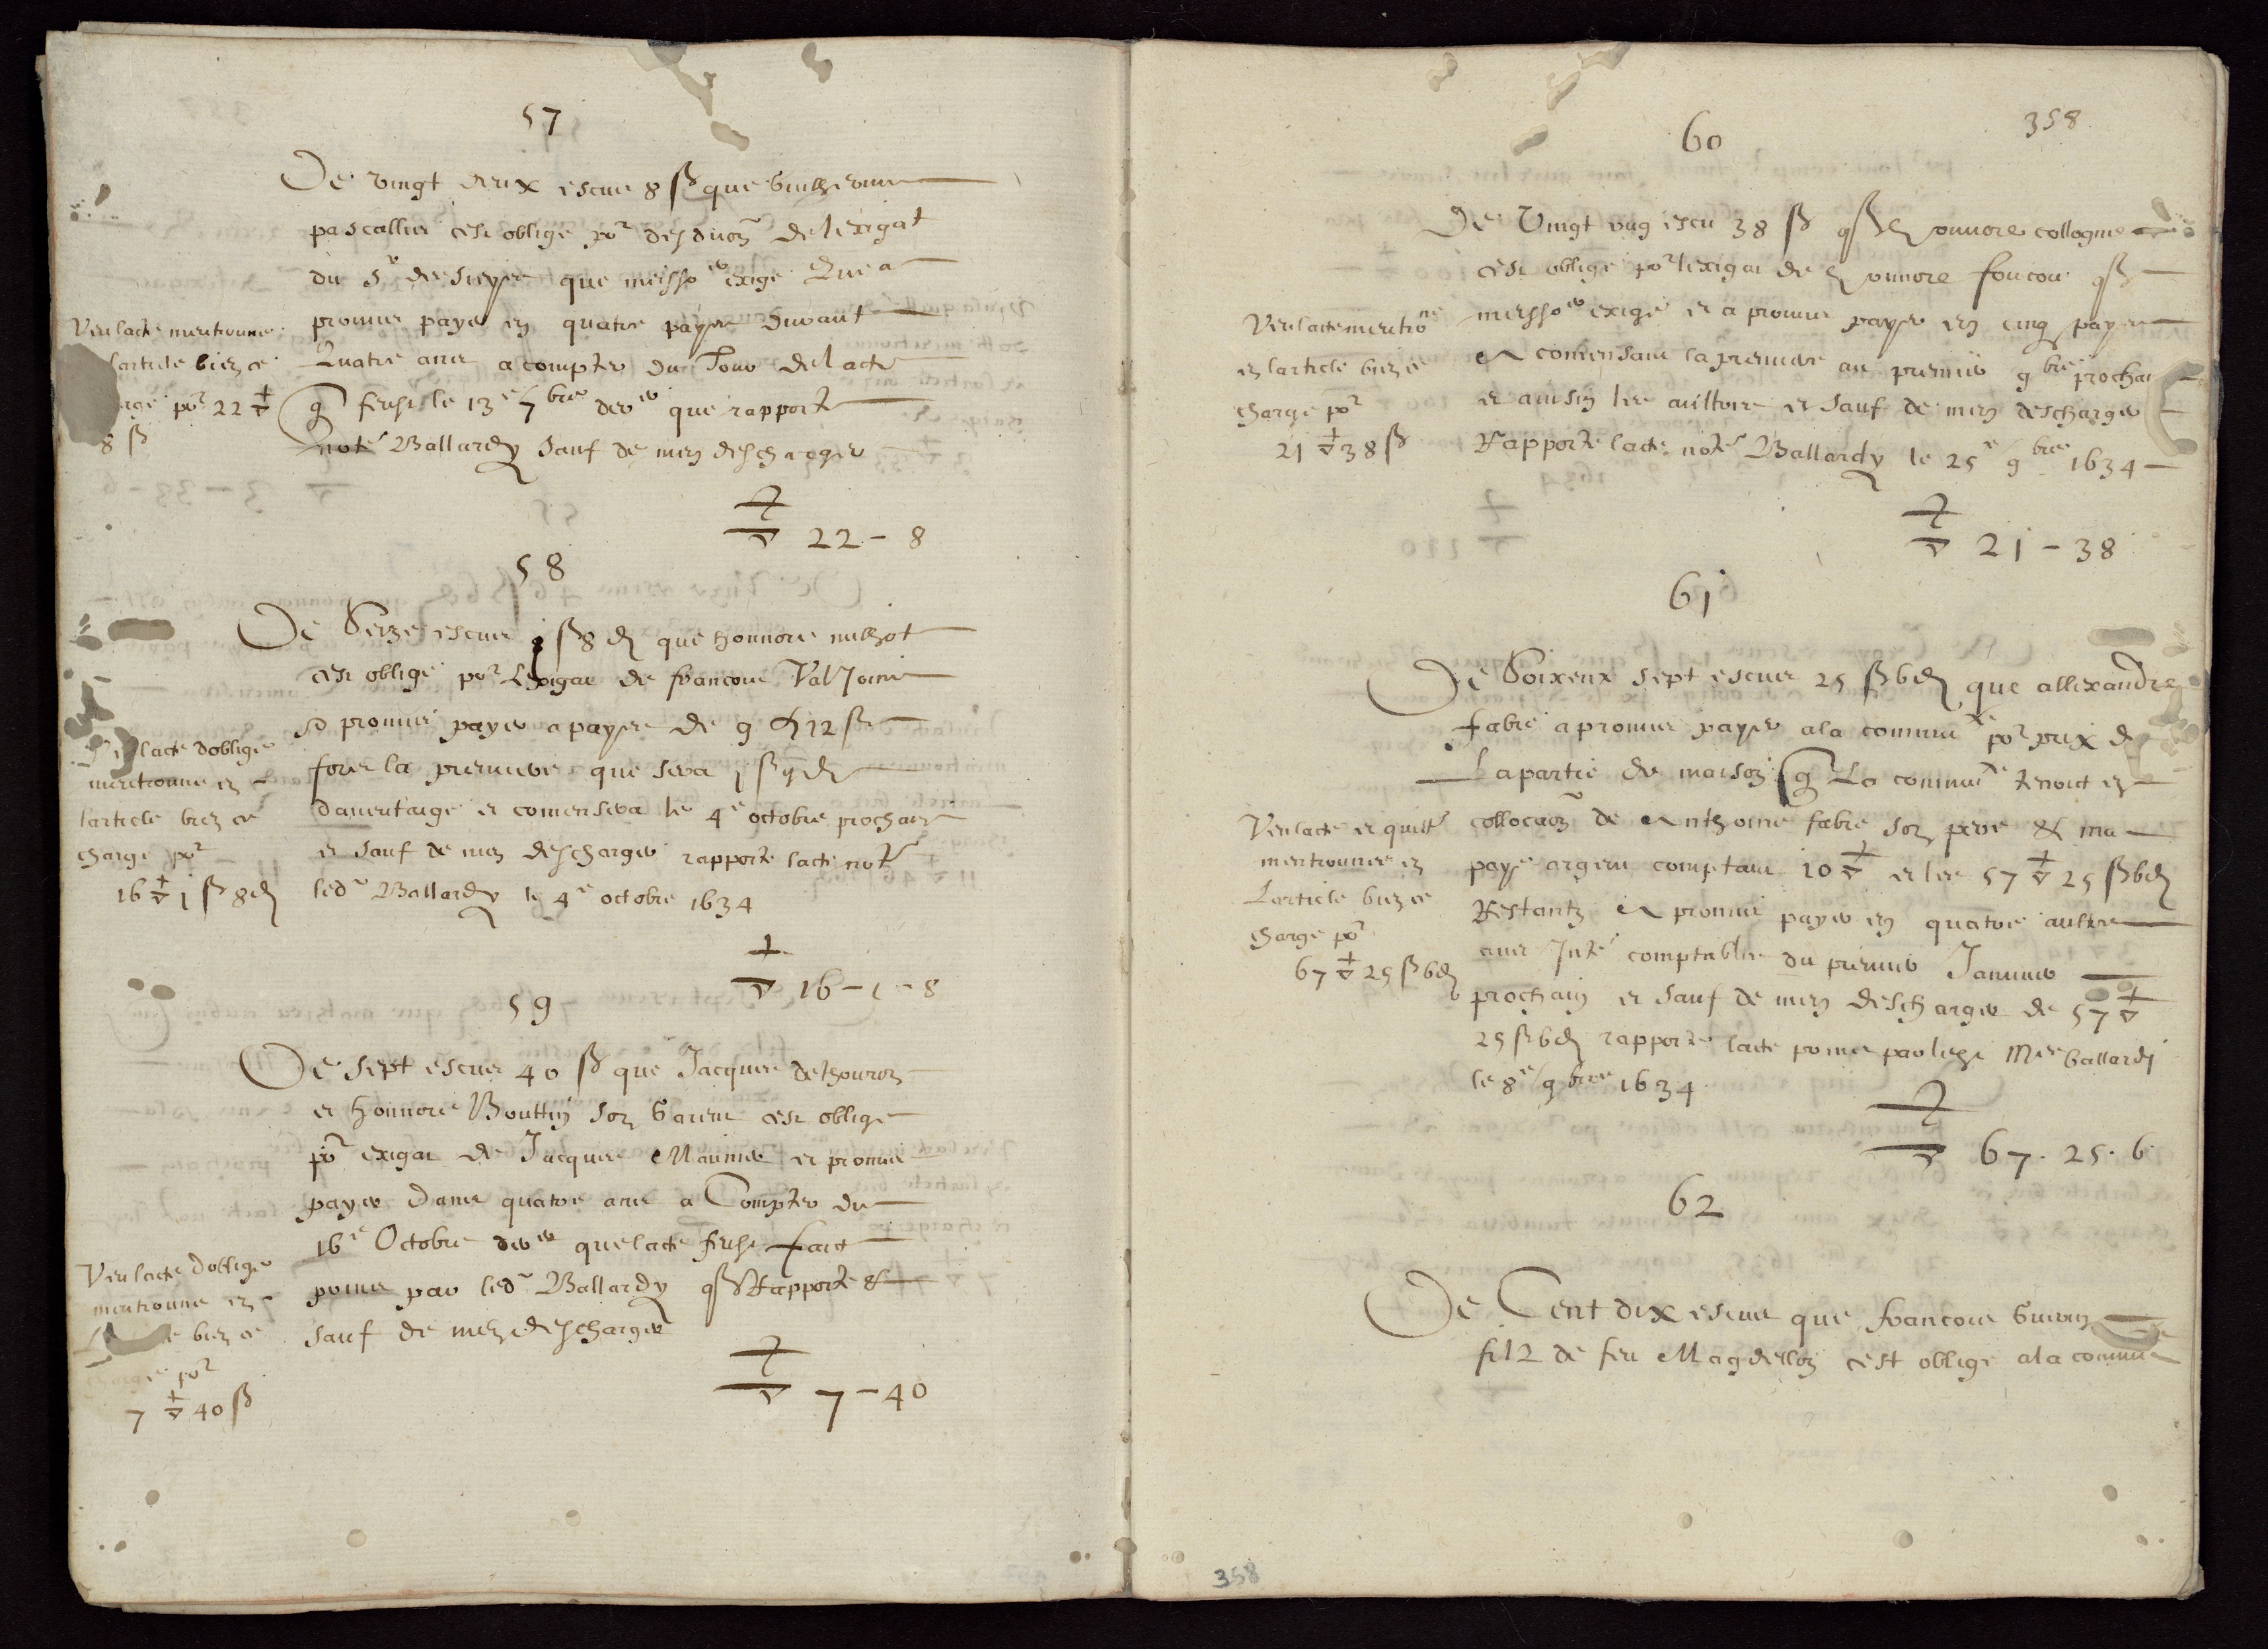 57
De vingt deux escus 8 ß que Guilheaume
pascallis cest obligé po^r desduon de lexigat
du S^r de Sieyes que messrs exigé Quil a
promis payer en quatre payes durant
Quatre ans a compter du Jour de lacte
q feust le 13^e 7^bre der^er que rapporte
not^e Ballardy sauf de men descharger
Veu lacte mentionne
larticle bien ce
po^r 22 ▽
8 ß
▽ 22 - 8
58
De Seize escus 1 ß 8 d que honnore milhot
cest obligé po^r Lexigat de francois Val
promis payer a payes de 9 12 ß
fors la premiere que sera 1 ß
daventaige et comensera le 4^e octobre prochain
et sauf de men descharger rapporte lacte not^e
led^t Ballardy le 4^e octobre 1634
lacte doblige
mentionne en
larticle bien ce
charge po^r
16 ▽ 1 ß 8 d
▽ 16 - 1 - 8
59
De sept escus 40 ß que Jacques dethouron
et honnore Bouttin son cest obligé
po^r exigat de Jacques Maunier et promis
payer dans quatre ans a Compter du
16^e Octobre der^er que lacte feust fait
prins par led^t Ballardy q Rapporte &
sauf de men descharger
Veu lacte doblige
mentionne en
bien ce
po^r
7 ▽ 40 ß
▽ 7 - 40
358
60
De Vingt ung escu 38 ß honnore collogne
cest obligé po^r lexigat de honnore foucou
messrs exigé et a promis payer en cinq payes
A comensant la premiere au premier 9^bre prochai
et ainsin les aultres et sauf de men descharger
Rapporte lacte not^e Ballardy le 25^e 9^bre 1634
Veu lacte mentionné
en larticle bien ce
charge po^r
21 ▽ 38 ß
▽ 21 - 38
61
De Soixente sept escus 25 ß 6 d que allexandre
fabre a promis payer a la commu^te po^r prix de
La partie de maison q La commu^te tenoit en
collocaon de Anthoine fabre son pere & ma
paye argent comptant 10 ▽ et les 57 ▽ 25 ß 6 d
Restantz A promis payer en quatre aultres
ans comptables du premier Janvier
prochain et sauf de men descharger de 57 ▽
25 ß 6 d rapporte lacte Ballardi
le 8^e 9^bre 1634
Veu lacte et quitt^e
mentionnes en
Larticle bien ce
charge po^r
67 ▽ 25 ß 6 d
▽ 67 . 25 . 6
62
De Cent dix escus que francois
filz de feu Magdellon cest obligé a la commu^te
358